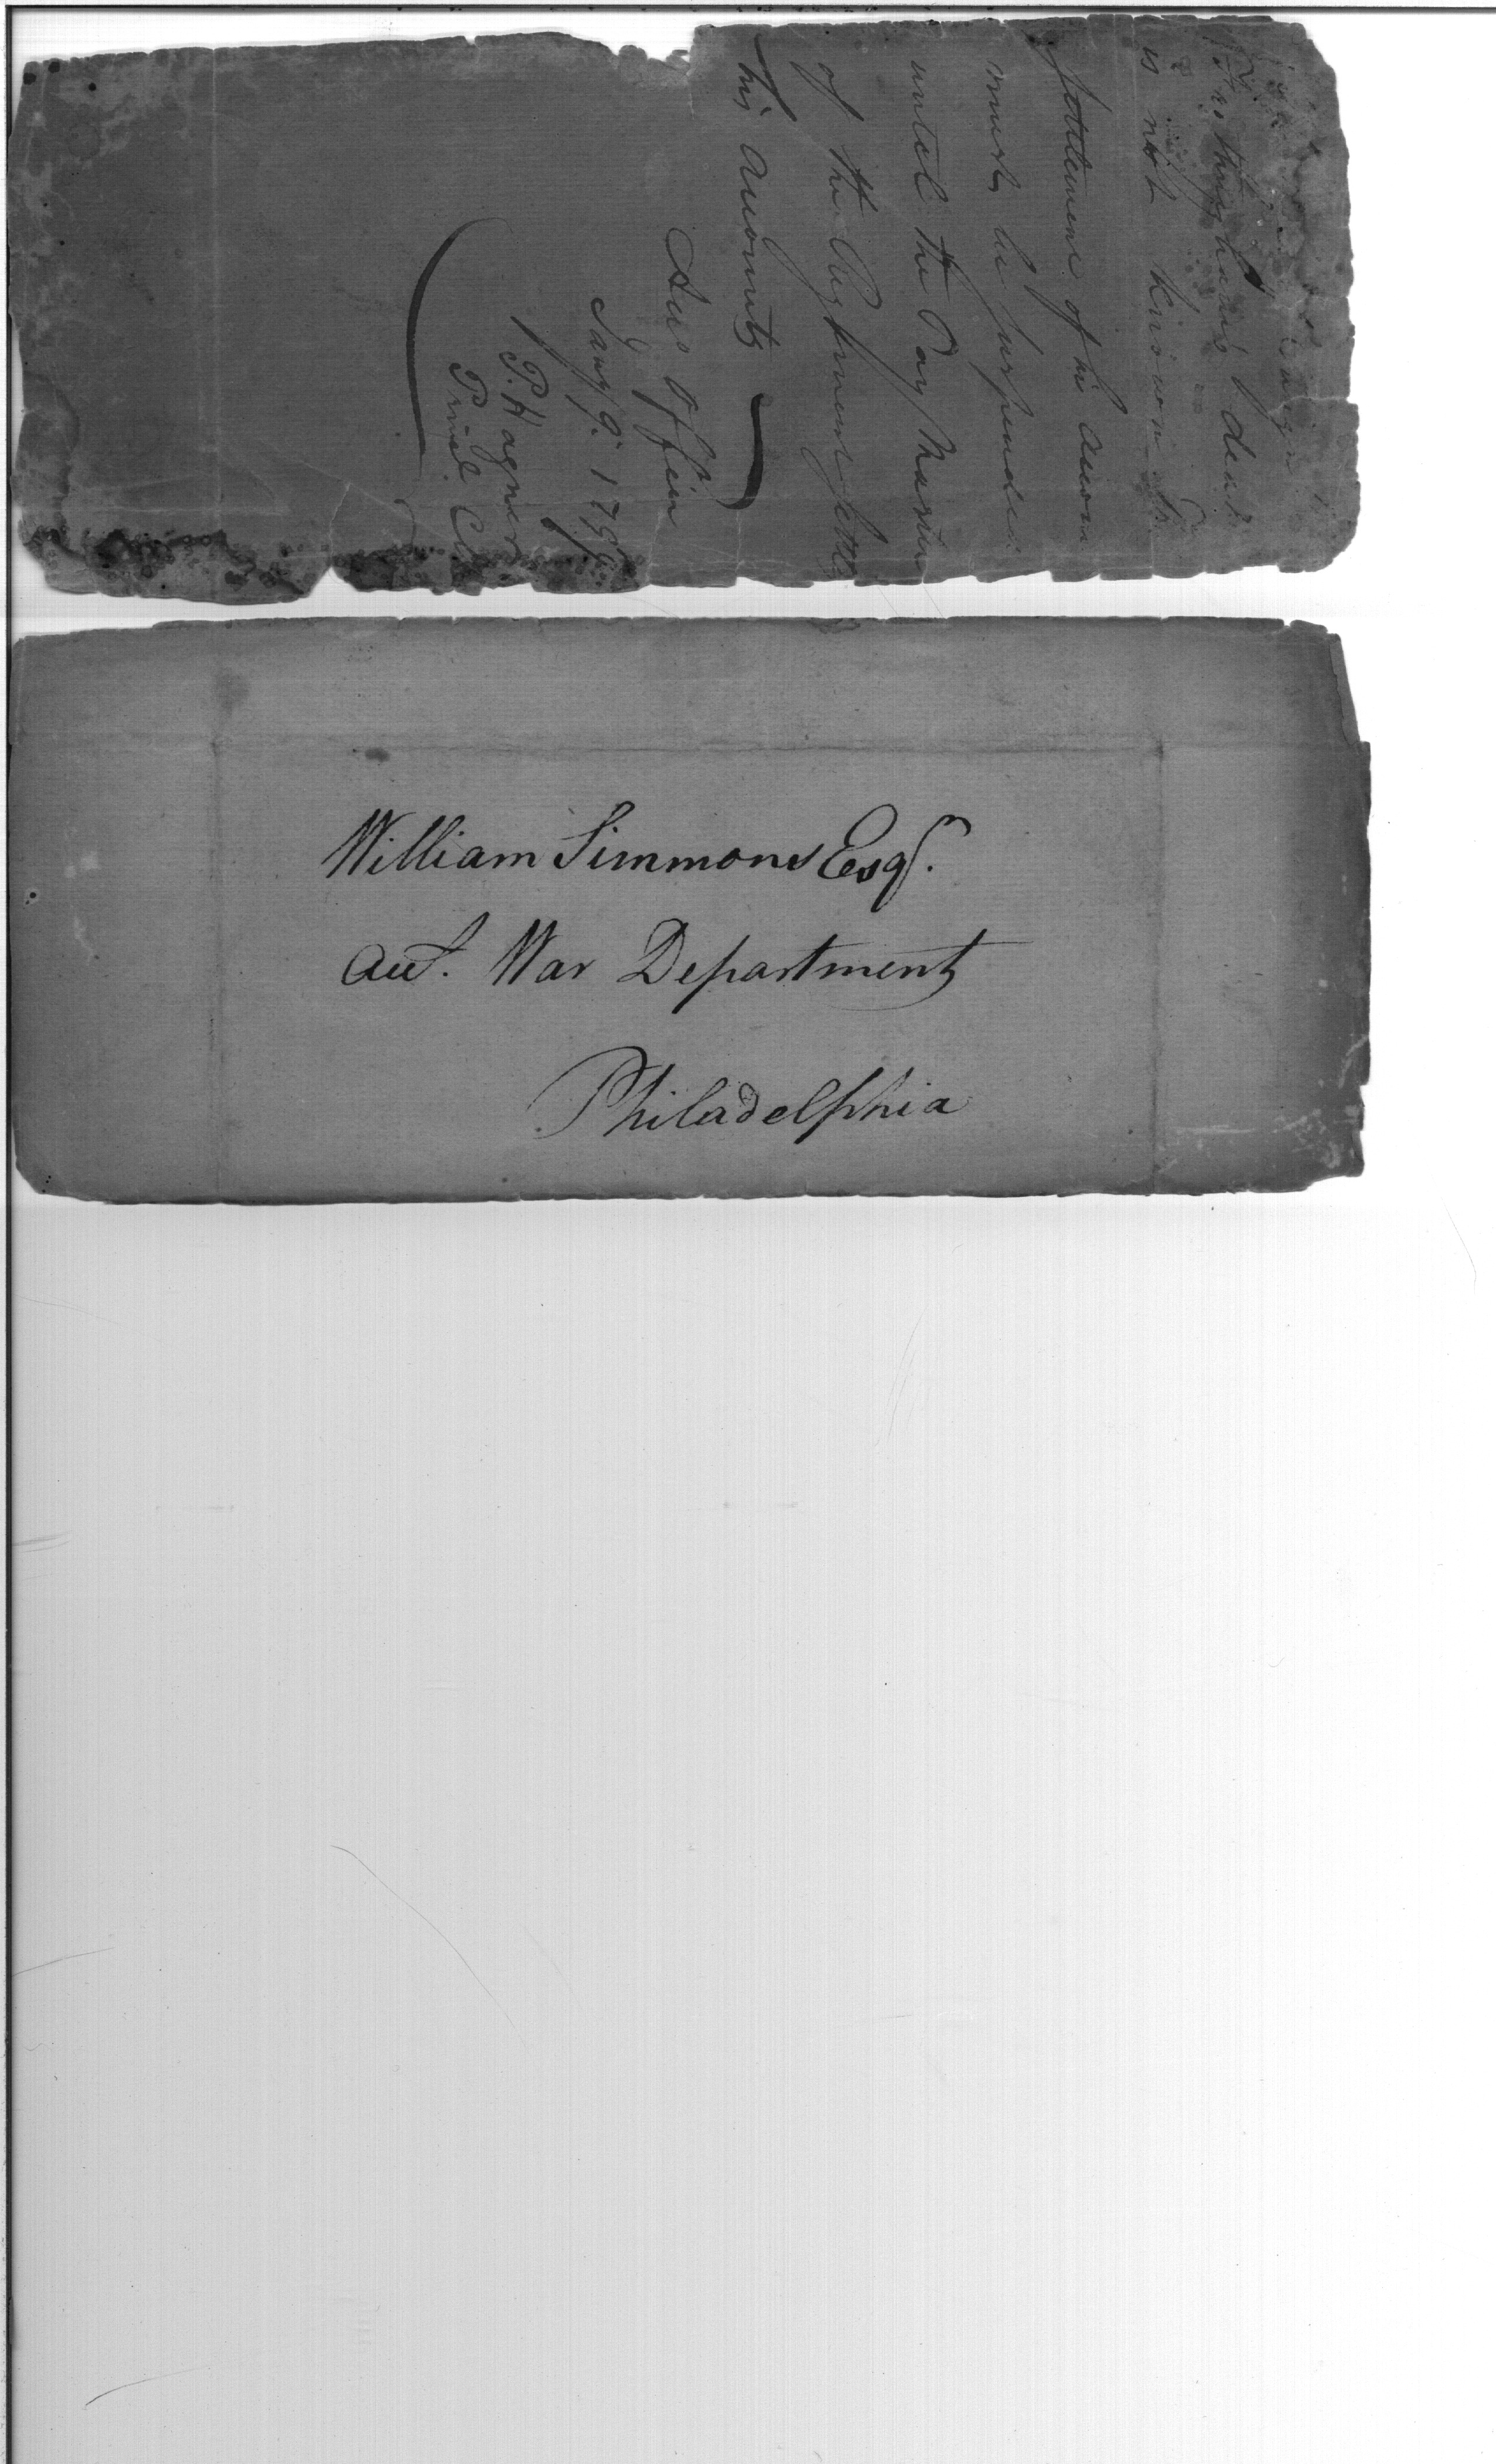 is not known the
settlement of his accou
must be suspended
until the Pay Master
of the Regiment settle
his accounts
Acc Office
Jany 9. 1799
P. Hagner
Princl. Cl
William Simmons Esqr.
acct. War Department
Philadelphia